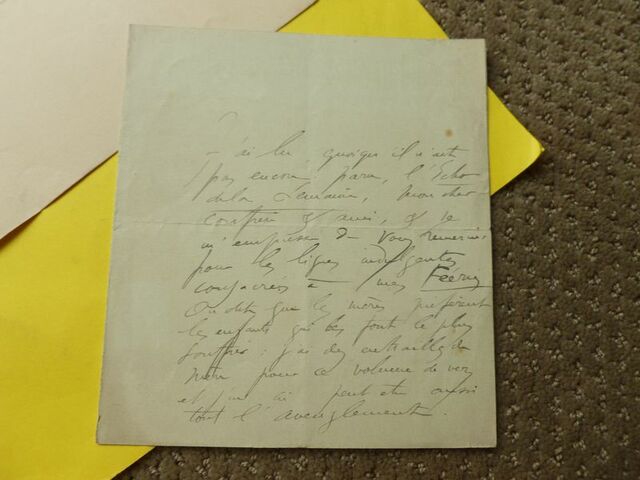 J'ai lu, quoiqu'il n'ait
pas encore paru, l'Echo
de la Semaine, mon cher
confrère & ami, & je
m'empresse de vous remercier
pour les lignes indulgentes
consacrées à mes Féeries
On dit que les mères préfèrent
les enfants qui les font le plus
souffrir : j'ai des entrailles de
mère pour ce volume de vers
et j'en ai peut-être aussi
tout l'aveuglement.